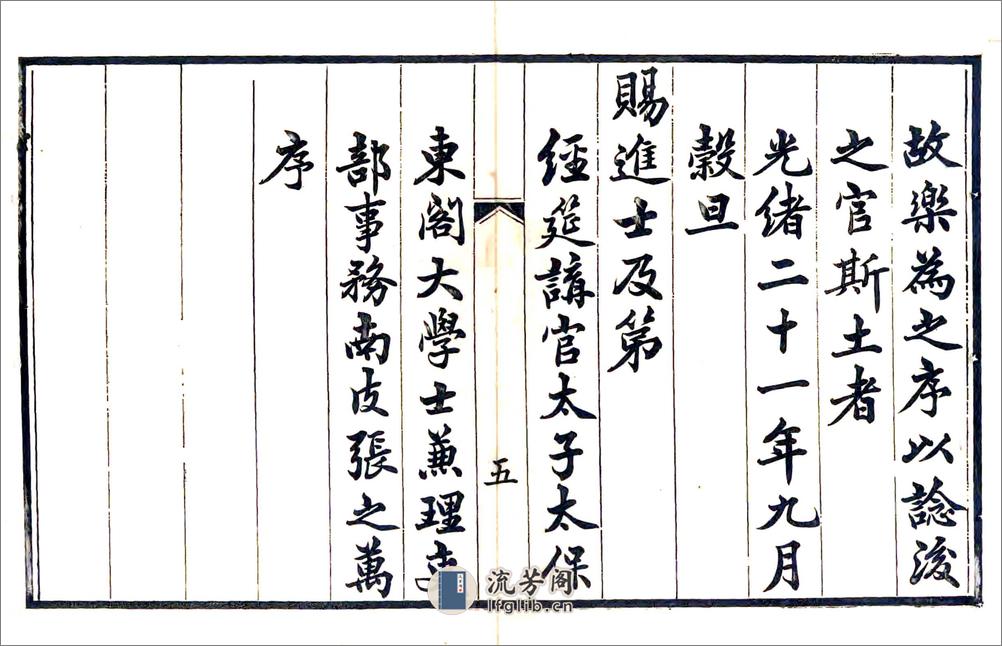 故樂為之序以諗後
之官斯土者
光緒二十一年九月
穀旦
賜進士及第
經筵講官太子太保
東閣大學士兼理吏
部事務南皮張之萬
序
五
流芳阁
lfglib.cn